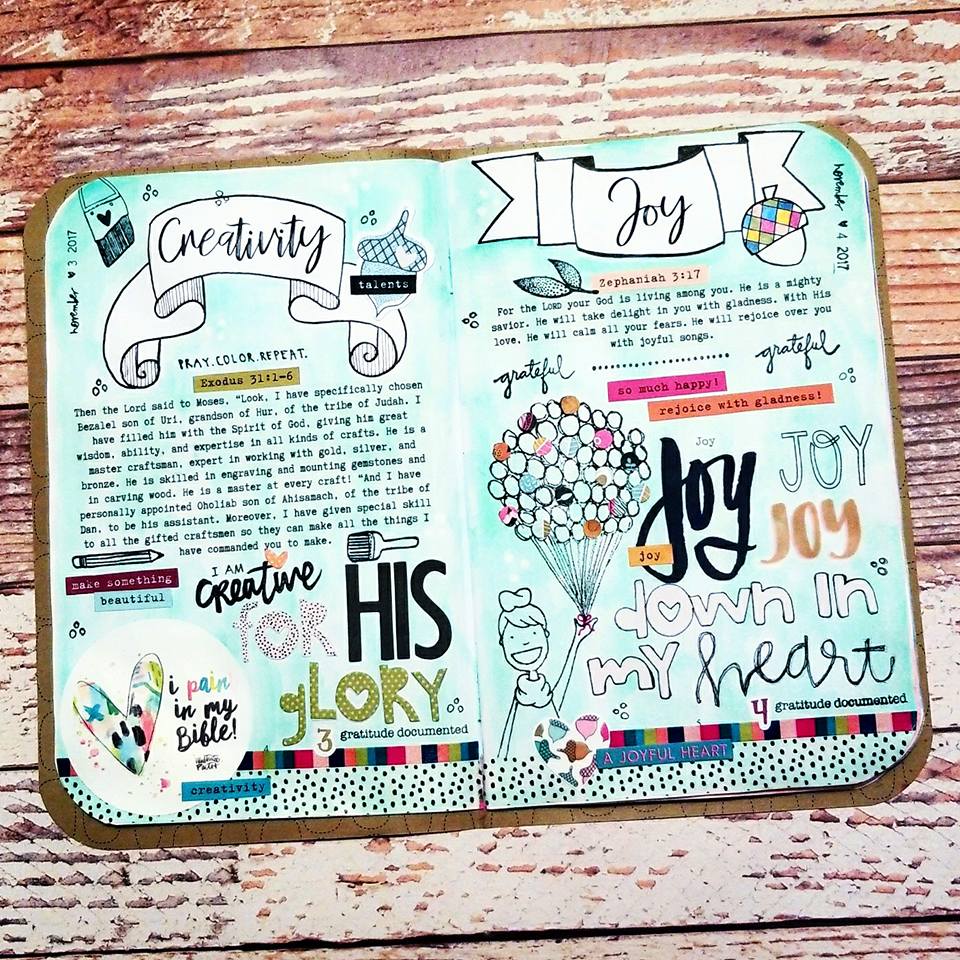 november ♥ 3 2017
Creativity
talents
PRAY.COLOR.REPEAT.
Exodus 31:1-6
Then the Lord said to Moses, "Look, I have specifically chosen
Bezalel son of Uri, grandson of Hur, of the tribe of Judah. I
have filled him with the Spirit of God, giving him great
wisdom, ability, and expertise in all kinds of crafts. He is a
master craftsman, expert in working with gold, silver, and
bronze. He is skilled in engraving and mounting gemstones and
in carving wood. He is a master at every craft! "And I have
personally appointed Oholiab son of Ahisamach, of the tribe of
Dan, to be his assistant. Moreover, I have given special skill
to all the gifted craftsmen so they can make all the things I
have commanded you to make.
make something
beautiful
I AM
creative
foR HIS
gLORY
i pain
in my
Bible!
3 gratitude documented
creativity
november ♥ 4 2017
Joy
Zephaniah 3:17
For the LORD your God is living among you. He is a mighty
savior. He will take delight in you with gladness. With His
love, He will calm all your fears. He will rejoice over you
with joyful songs.
grateful
grateful
so much happy!
rejoice with gladness!
Joy
Joy
JOY
JOY
joy
down in
my heart
4 gratitude documented
A JOYFUL HEART